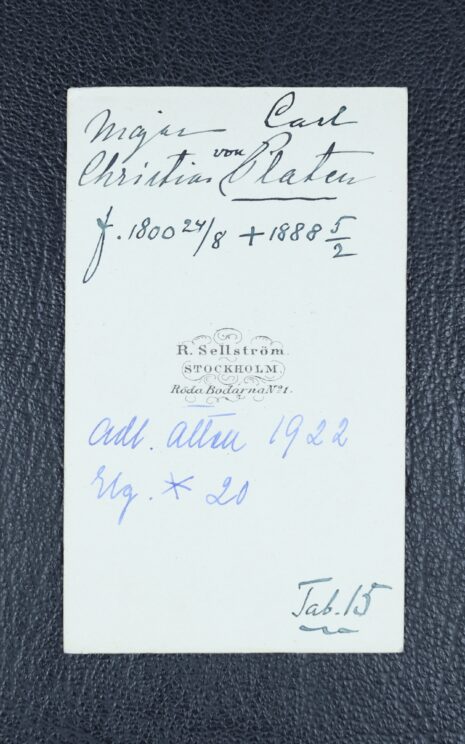 Major Carl
Christian von Platen
f. 1800 24/8 + 1888 5/2
R. Sellström.
STOCKHOLM,
Röda Bodarna No 1.
Adl. Ätten 1922
Elg. * 20
Tab. 15